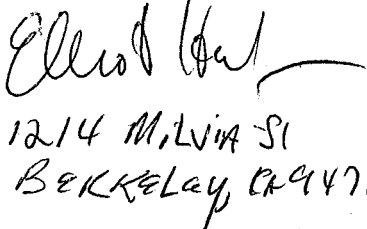 Elliot
1214 Milvia St
Berkeley, CA 947